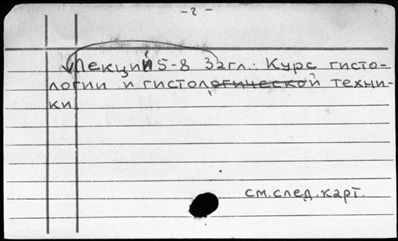 -2-
Лекции 5-8 Загл.: Курс гисто-
логии и гистологической техни-
ки
см.след.карт.